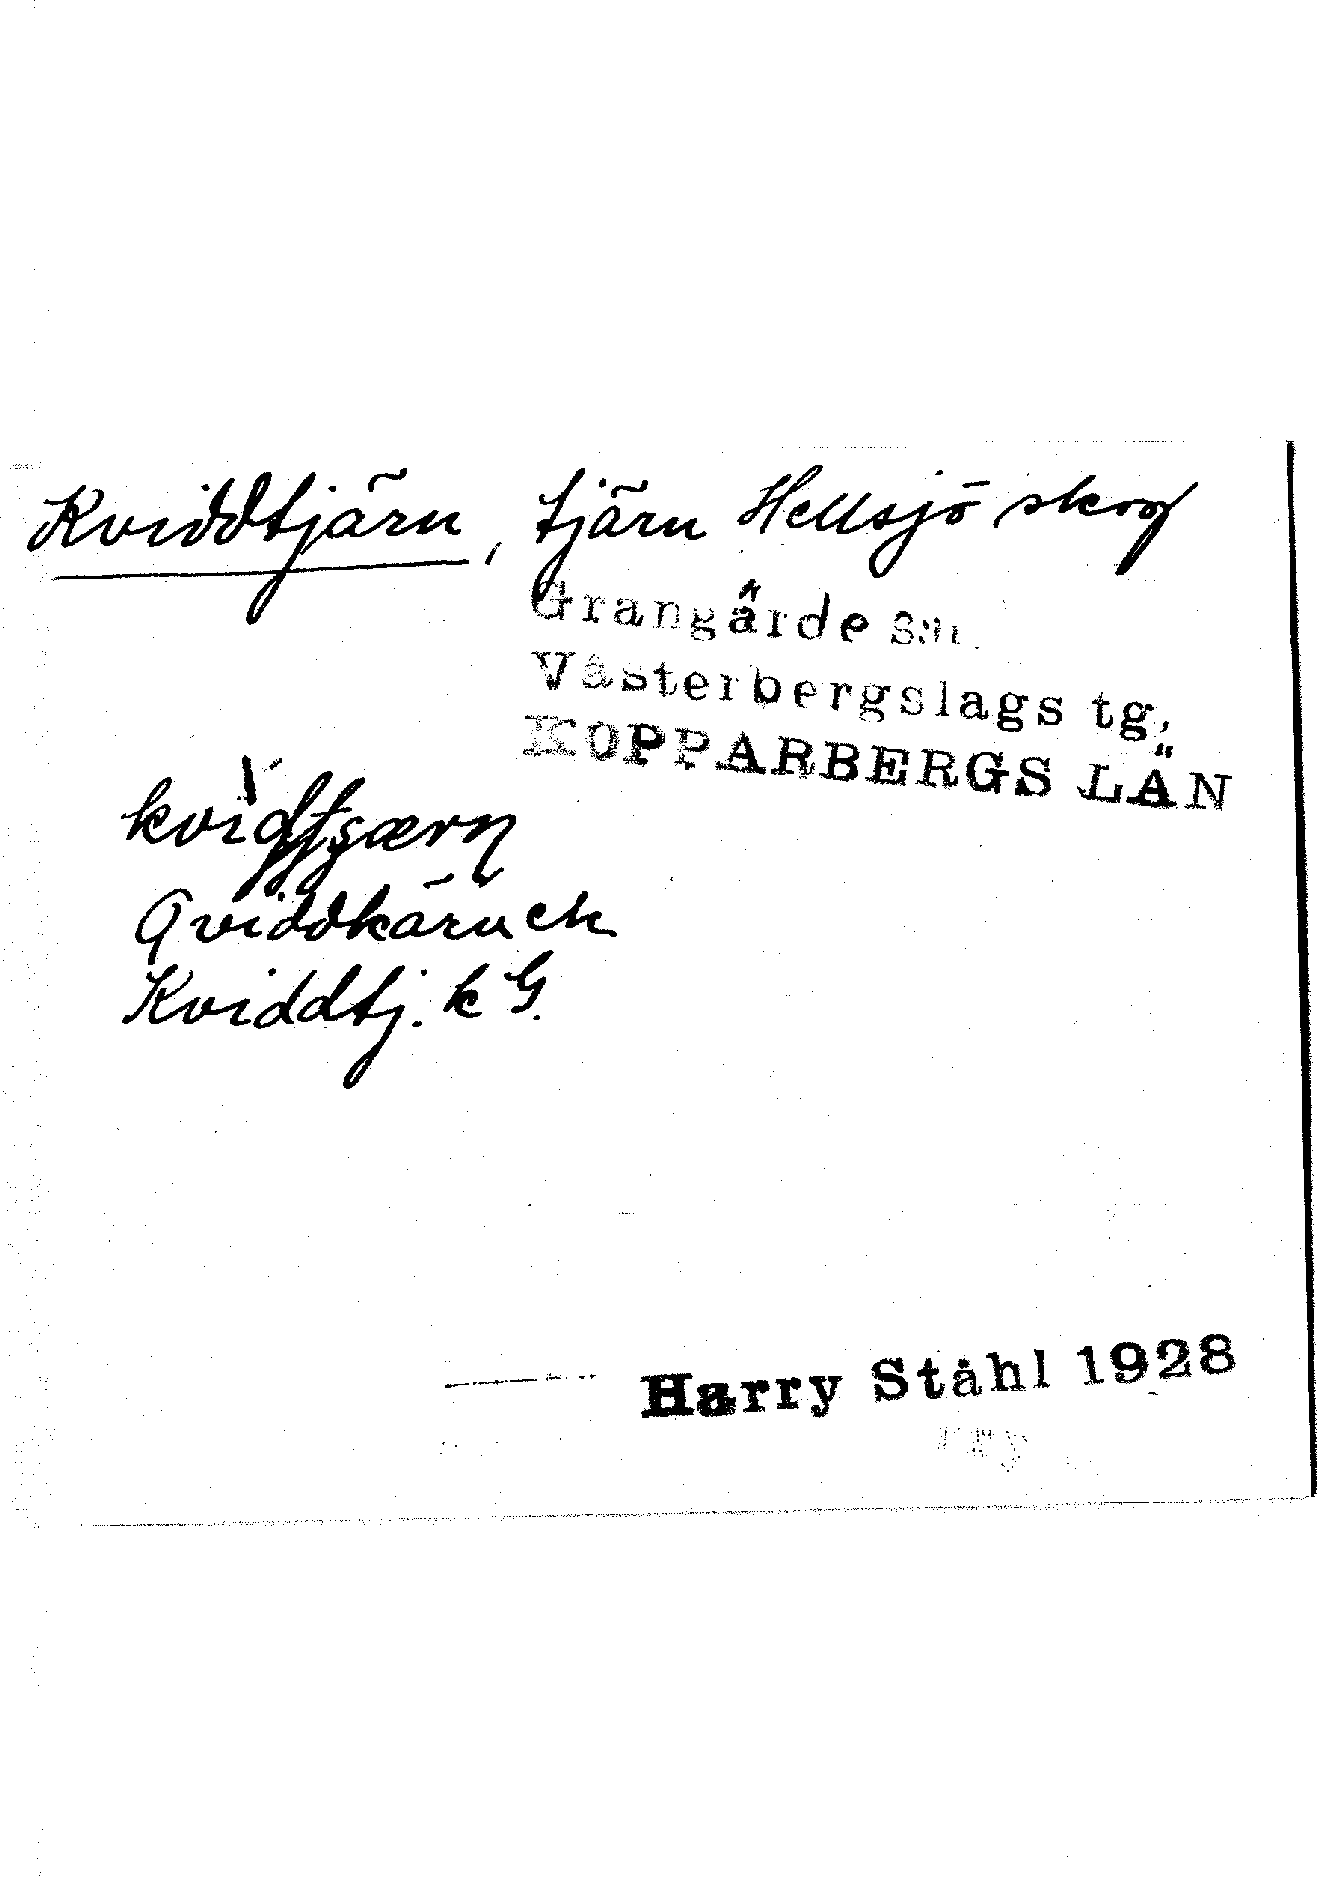 Kviddtjärn, tjärn Hellsjö skog
Grangärde sn.
Västerbergslags tg,
KOPPARBERGS LÄN
Qviddkärn ek
Kviddtj. k G.
Harry Ståhl 1928